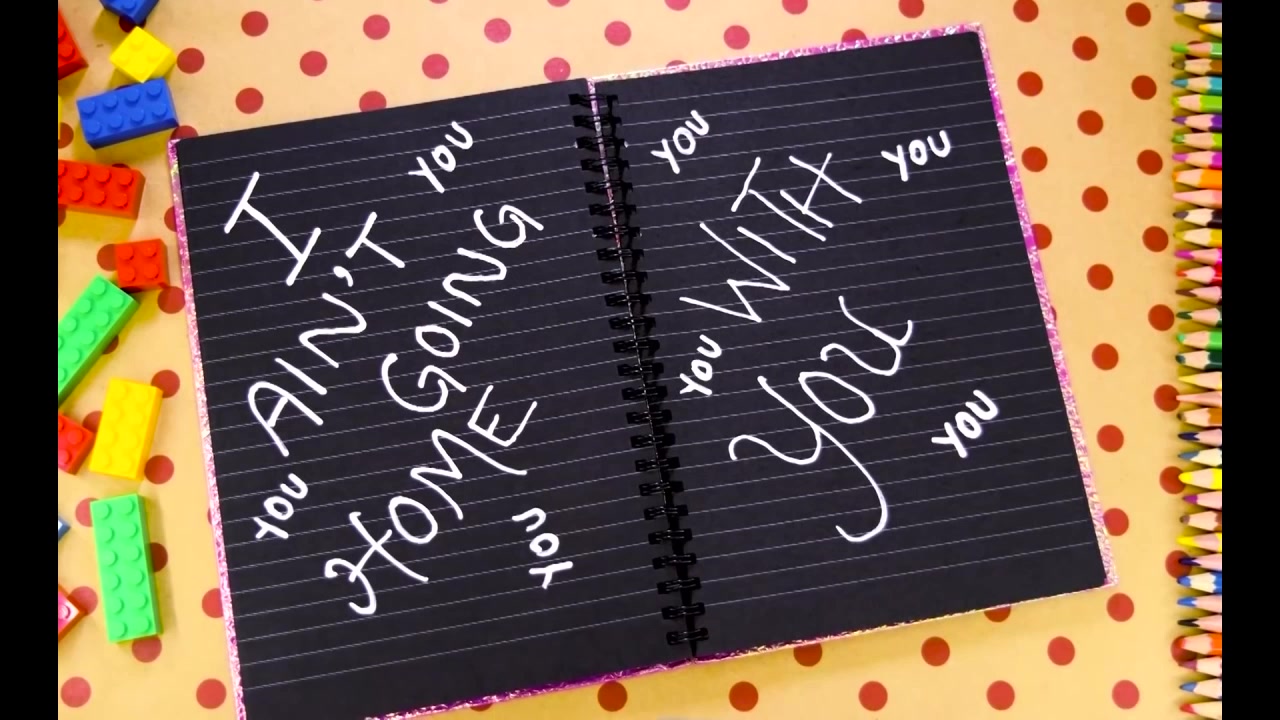 I
AIN'T
GOING
HOME
YOU
YOU
YOU
WITH
YOU
YOU
YOU
YOU
YOU